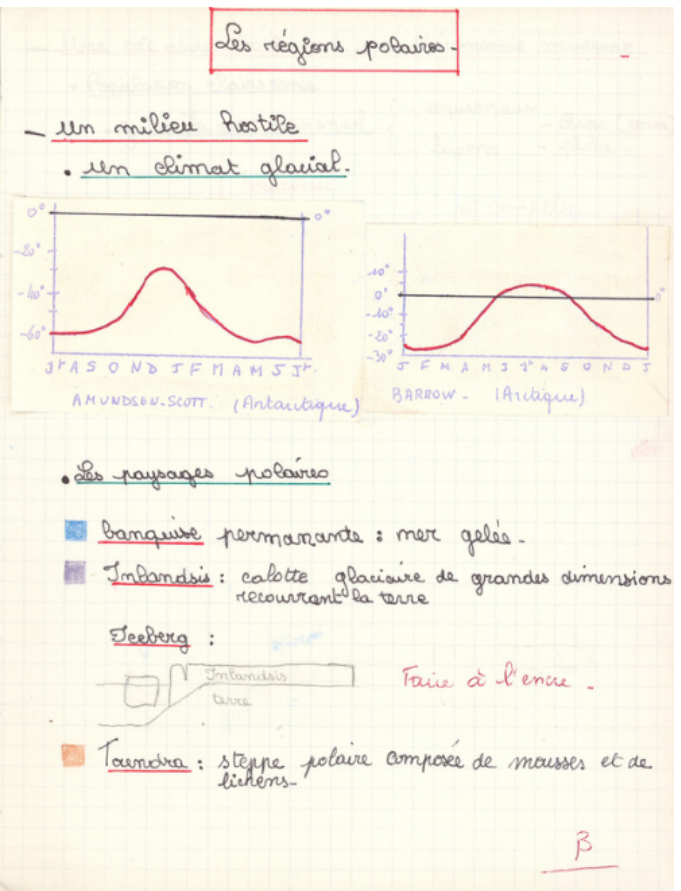 Les régions polaires.
– un milieu hostile
• un climat glacial.
0° 0°
-20°
-40°
-60°
Jt A S O N D J F M A M J Jt.
AMUNDSEN-SCOTT. (Antarctique)
10°
0° 0°
-10°
-20°
-30°
J F M A M J Jt A S O N D J
BARROW. (Arctique)
• Les paysages polaires
banquise permanante : mer gelée.
Inlandsis : calotte glaciaire de grandes dimensions
recouvrant la terre
Iceberg :
Inlandsis
terre
Faire à l'encre.
Toundra : steppe polaire composée de mousses et de
lichens.
β